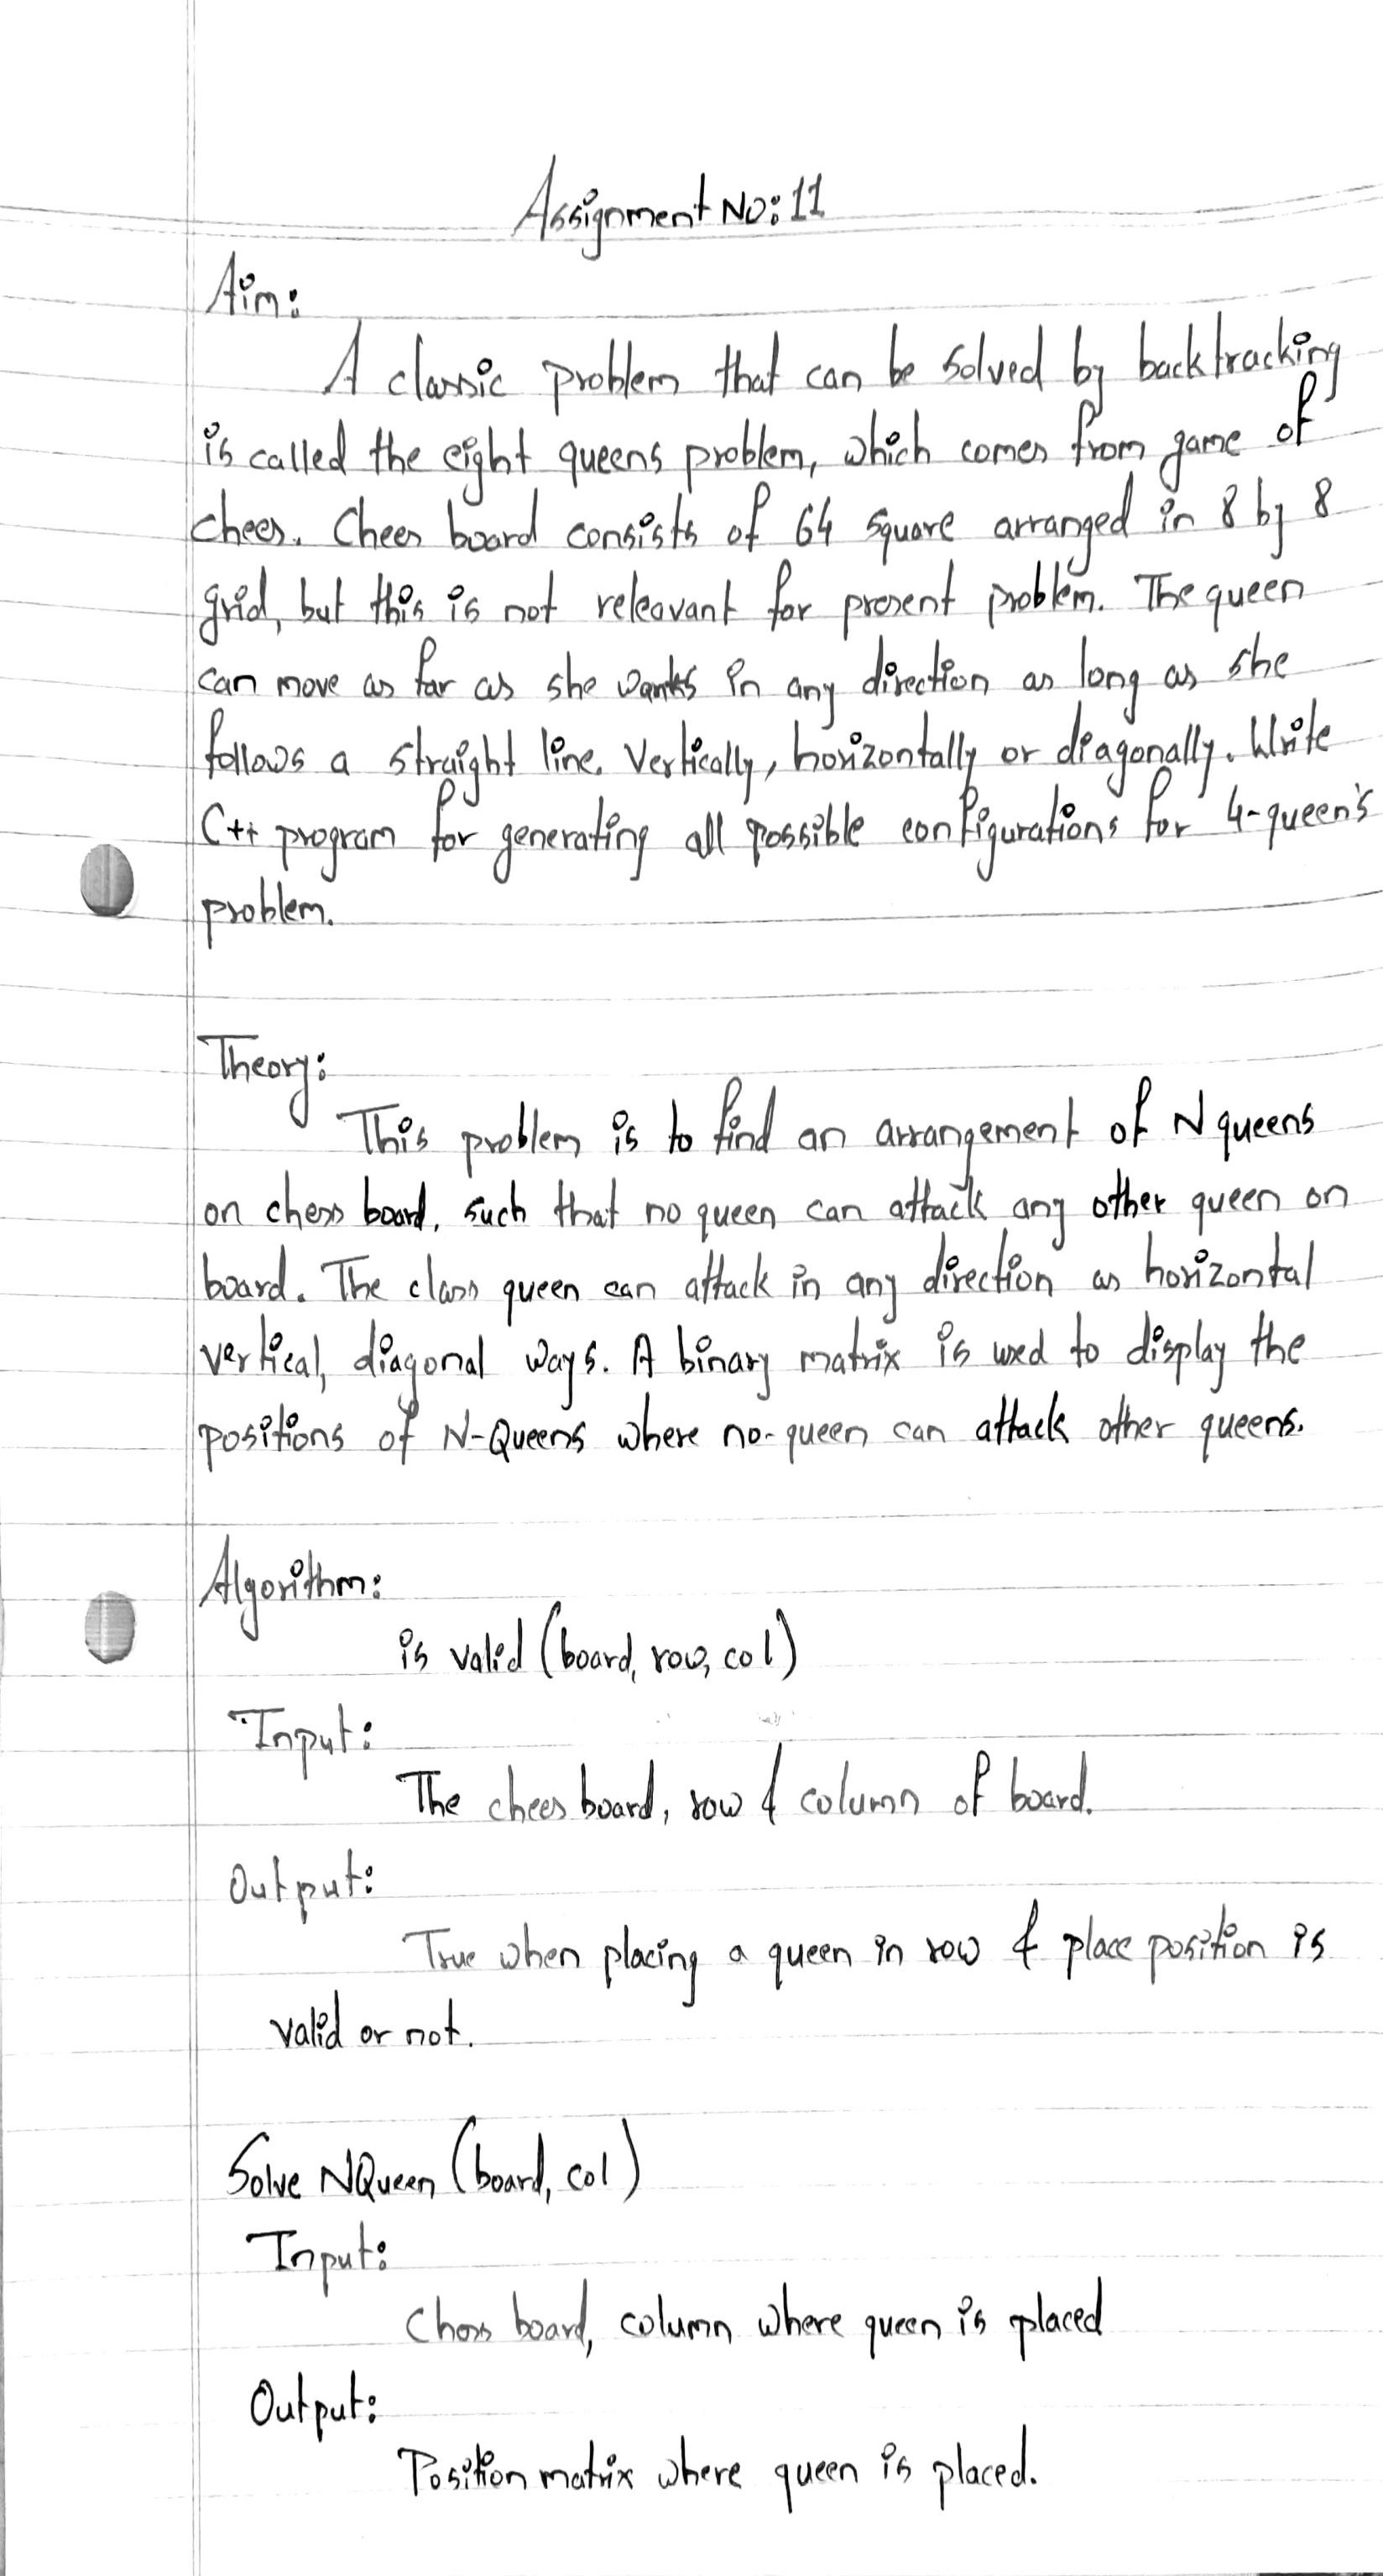 Assignment No: 11
Aim:
A classic problem that can be solved by backtracking
is called the eight queens problem, which comes from game of
chees. Chees board consists of 64 square arranged in 8 by 8
grid, but this is not releavant for present problem. The queen
can move as far as she wants in any direction as long as she
follows a straight line. Vertically, horizontally or diagonally. Write
C++ program for generating all possible configurations for 4-queen's
problem.
Theory:
This problem is to find an arrangement of N queens
on chess board, such that no queen can attack any other queen on
board. The class queen can attack in any direction as horizontal
vertical, diagonal ways. A binary matrix is used to display the
positions of N-Queens where no-queen can attack other queens.
Algorithm:
is valid (board, row, col)
Input:
The chees board, row & column of board.
Output:
True when placing a queen in row & place position is
valid or not.
Solve NQueen (board, col)
Input:
Chess board, column where queen is placed
Output:
Position matrix where queen is placed.